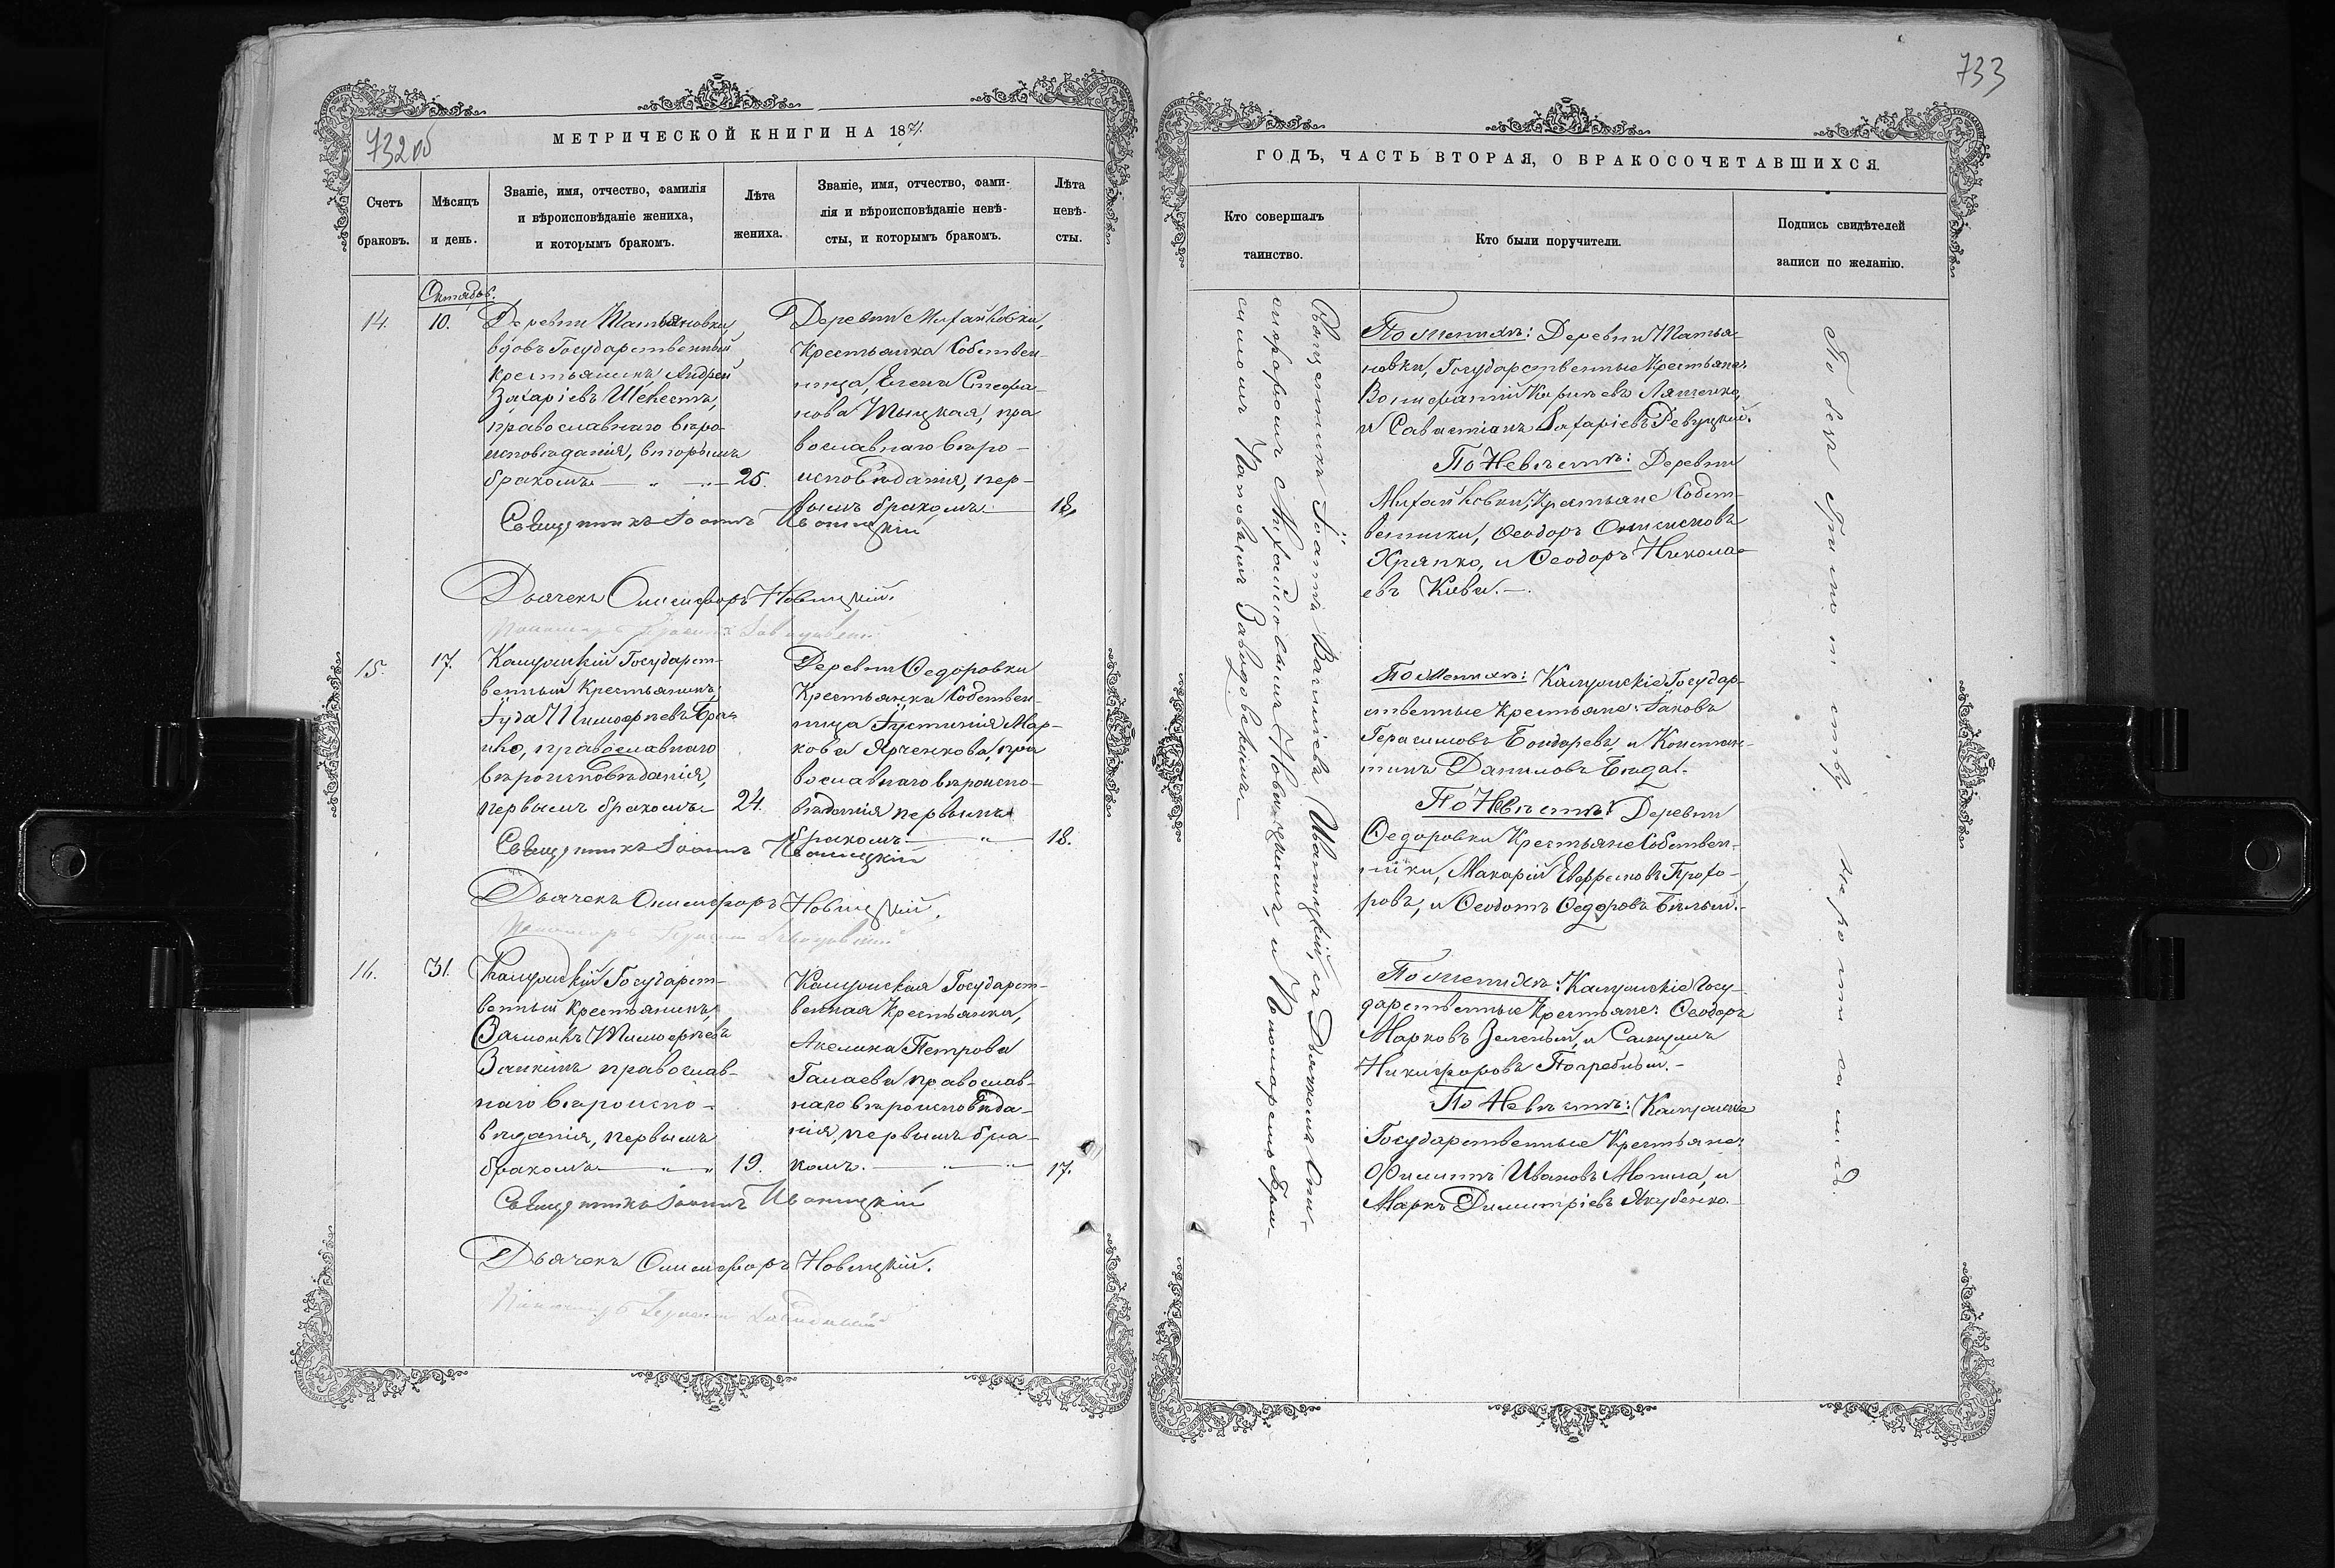 732об
МЕТРИЧЕСКОЙ КНИГИ НА 1871.
Счетъ браковъ.
Мѣсяцъ и день.
Званіе, имя, отчество, фамилія
и вѣроисповѣданіе жениха,
и которымъ бракомъ.
Лѣта жениха.
Званіе, имя, отчество, фами-
лія и вѣроисповѣданіе невѣ-
сты, и которымъ бракомъ.
Лѣта невѣ-
сты.
Октябрь.
14.
10.
Деревни Татьяновки
вдовъ Государственный
крестьянинъ, Андрей
Захаріевъ Шелестъ,
православнаго вѣро-
исповѣданія, вторымъ
бракомъ
25.
Деревни Михайловки,
Крестьянка Собствен-
ница, Елена Стефа-
нова Тыцкая, пра
вославнаго вѣро-
исповѣданія, пер-
вымъ бракомъ
18.
Священникъ Іоаннъ Иваницкій
Дьячекъ Онисифоръ Новицкій.
Пономарь
15.
17.
Государст-
венный Крестьянинъ,
Іуда Тимоѳеевъ
православнаго
вѣроисповѣданія,
первымъ бракомъ
24.
Деревни Ѳедоровки
Крестьянка Собствен-
ница Іустинія Мар-
кова Ярченкова, пра
вославнаго вѣроиспо-
вѣданія первымъ
бракомъ
18.
Священникъ Іоаннъ Иваницкій
Дьячекъ Онисифоръ Новицкій.
Пономарь
16.
31.
Государст-
венный Крестьянинъ,
Тимоѳеевъ
православ-
наго вѣроиспо-
вѣданія, первымъ
бракомъ
19.
Государст-
венная Крестьянка,
Акелина Петрова
Галаева православ-
наго вѣроисповѣда-
нія, первымъ бра-
комъ.
17.
Священникъ Іоаннъ Иваницкій
Дьячекъ Онисифоръ Новицкій.
Пономарь
733
ГОДЪ, ЧАСТЬ ВТОРАЯ, О БРАКОСОЧЕТАВШИХСЯ.
Кто совершалъ
таинство.
Кто были поручители.
Подпись свидѣтелей
записи по желанію.
Священникъ Іоаннъ Василіевъ Иваницкій, съ Дьячкомъ Они-
сифоромъ Михайловымъ Новицкимъ, и Пономаремъ
По женихѣ: Деревни Татья-
новки, Государственные Крестьяне:
Вонифатій Кириловъ Ляшенко,
и Савастіанъ Захаріевъ Ревуцкій.
По Невѣстѣ: Деревни
Михайловки, Крестьяне Собст-
венники, Ѳеодоръ Онисимовъ
Хряпко, и Ѳеодоръ Никола-
евъ Кива.
По женихѣ: Государ-
ственные Крестьяне: Іаковъ
Герасимовъ Бондаревъ, и Констан-
тинъ Даниловъ
По Невѣстѣ: Деревни
Ѳедоровки Крестьяне Собствен-
ники, Макарій Прохо-
ровъ, и Ѳеодотъ Ѳедоровъ Бѣлый.
По женихѣ: Госу-
дарственные Крестьяне: Ѳеодоръ
Марковъ Зеленый, и
Никифоровъ Погребный.
По Невѣстѣ:
Государственные Крестьяне:
Филиппъ Ивановъ Могила, и
Маркъ Димитріевъ Якубенко.
По безграмотству неросписались.